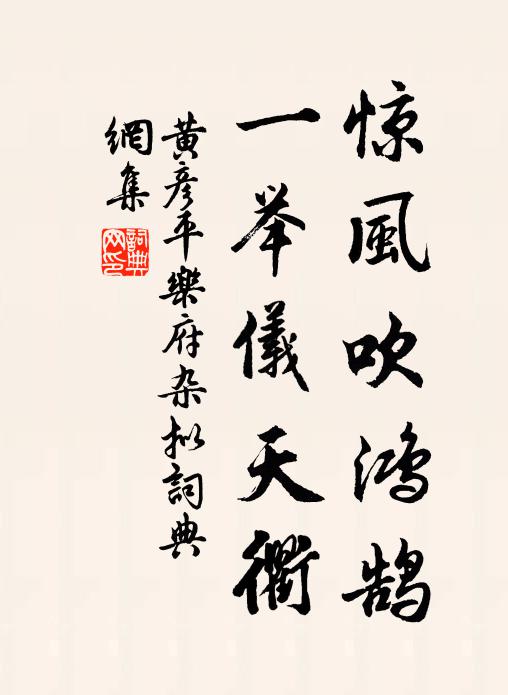 惊風吹鸿鹄
一举儀天衢
黄彦平樂府杂拟詞典
網集
詞典网印